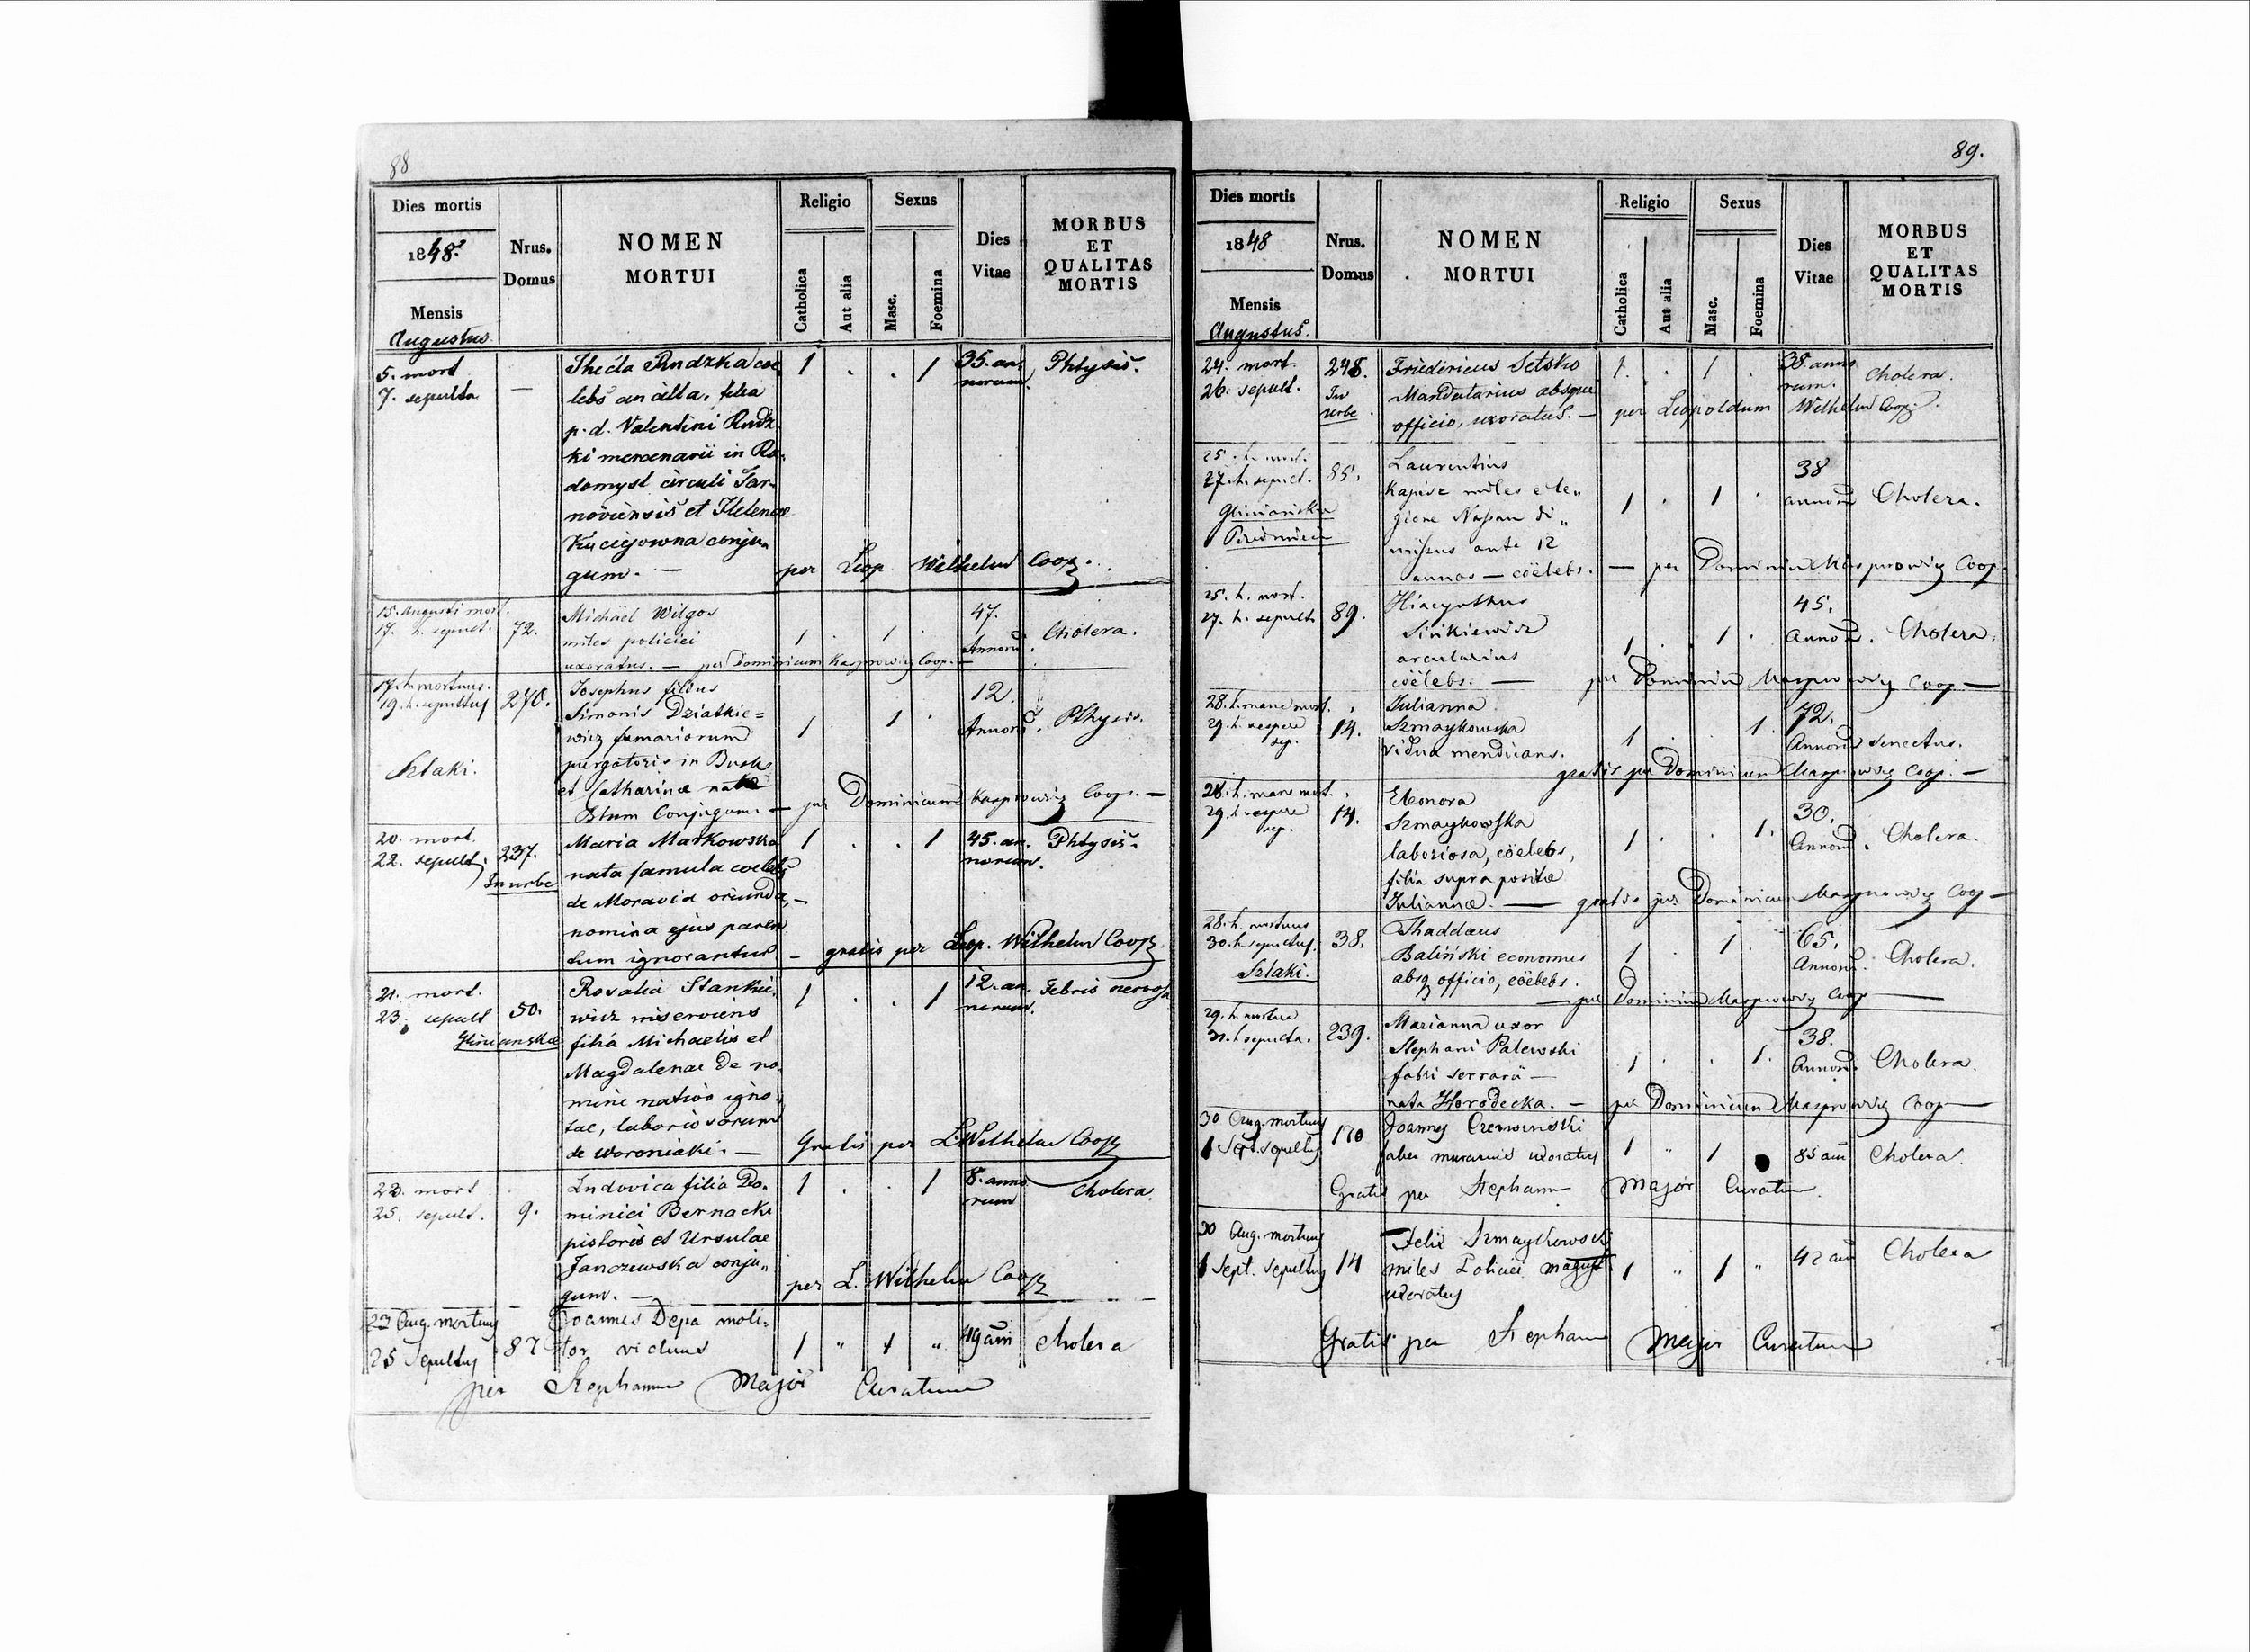 88
Dies mortis
1848.
Mensis
Augustus
Nrus.
Domus
NOMEN
MORTUI
Religio
Catholica
Aut alia
Sexus
Masc.
Foemina
Dies
Vitae
MORBUS
ET
QUALITAS
MORTIS
5. mort
7. sepulta
—
Thecla Rudzka coe
lebs ancilla, filia
p. d. Valentini Rudz
ki mercenarii in Ra
domysl circuli Tar
noviensis et Helenae
conju„
gum. —
1 . . 1
35. an
norum.
Phtysis.
per Leop. Wilhelm Coop.
15. Augusti mort.
17. h. sepult.
72.
Michael Wilgos
miles policiei
uxoratus. — per Dominicum Kasprowicz Coop. —
1 . 1 .
47.
Annorū.
Cholera.
17. h. mortuus.
19. h. sepultus
Szlaki.
270.
Josephus filius
Simonis Dziatkie=
wicz fumariorum
purgatoris in Busk
et Catharinae natae
Blum Conjugum. — per Dominicum Kasprowicz Coop. —
1 . 1 .
12.
Annorū.
Pthysis.
20. mort.
22. sepult.
237.
In urbe
Maria Markowska
nata famula coelebs
de Moravia oriunda, —
nomina ejus paren
tum ignorantur — gratis per Leop. Wilhelm Coop.
1 . . 1
45. an.
norum.
Phtysis.
21. mort.
23. sepult
50.
Glinianskie
Rosalia Stankie„
wicz miserviens
filia Michaelis et
Magdalenae de no„
mine nativo igno„
tae, laboriosorum
de Woroniaki. —
1 . . 1
12. an.
norum.
Febris nervosa
Gratis per L. Wilhelm Coop
23. mort
25. sepult.
9.
Ludovica filia Do„
minici Bernacki
pistoris et Ursulae
Janczewska conju„
gum. —
1 . . 1
8. anno
rum
Cholera.
per L. Wilhelm Coop
23 Aug. mortuus
25 Sepultus
87
Joannes Depa moli=
tor viduus
1 „ 1 „
49 ann
Cholera
per Stephanum Major Curatum
89.
Dies mortis
1848
Mensis
Augustus.
Nrus.
Domus
NOMEN
MORTUI
Religio
Catholica
Aut alia
Sexus
Masc.
Foemina
Dies
Vitae
MORBUS
ET
QUALITAS
MORTIS
24. mort.
26. sepult.
248.
In
urbe
Fridericus Setsko
Mandatarius absque
officio, uxoratus. —
1 . 1 .
38. anno
rum.
Cholera.
per Leopoldum Wilhelm Coop.
25. h. mort.
27. h. sepult.
Glinianskie
85.
Laurentius
Kapisz miles e le„
gione Nassau di„
missus ante 12
annos — cöelebs. — per Dominicum Kasprowicz Coop.
1 . 1 .
38
annorū
Cholera.
25. h. mort.
27. h. sepult.
89.
Hiacynthus
Sinkiewicz
arcularius
cöelebs. — per Dominicum Kasprowicz Coop —
1 . 1 .
45.
Annorū.
Cholera.
28. h. mane mort.
29. h. vespere
sep.
14.
Julianna
Szmaykowska
vidua mendicans.
1 . . 1.
72.
Annorū
senectus.
gratis per Dominicum Kasprowicz Coop. —
28. h. mane mort.
29. h. vespere
sep.
14.
Eleonora
Szmaykowska
laboriosa, cöelebs,
filia supra positae
Juliannae. — gratis per Dominicum Kasprowicz Coop —
1 . . 1.
30.
Annorū.
Cholera.
28. h. mortuus
30. h. sepultus.
Szlaki.
38.
Thaddaeus
Baliński economus
absq officio, cöelebs.
— per Dominicum Kasprowicz Coop —
1 . 1 .
65.
Annorū.
Cholera.
29. h. mortua
31. h. sepulta.
239.
Marianna uxor
Stephani Palewski
fabri serrarii —
nata Horodecka. — per Dominicum Kasprowicz Coop —
1 . . 1.
38.
Annorū.
Cholera.
30 Aug. mortuus
1 Sept. sepultus
170
Joannes Czerwinski
faber murarius uxoratus
1 „ 1
85 ann
Cholera.
Gratis per Stephanum Major Curatum.
30 Aug. mortuus
1 Sept. Sepultus
14
Felix Szmaykowski
miles Policiei
uxoratus
1 „ 1 „
42 ann
Cholera
Gratis per Stephanum Major Curatum